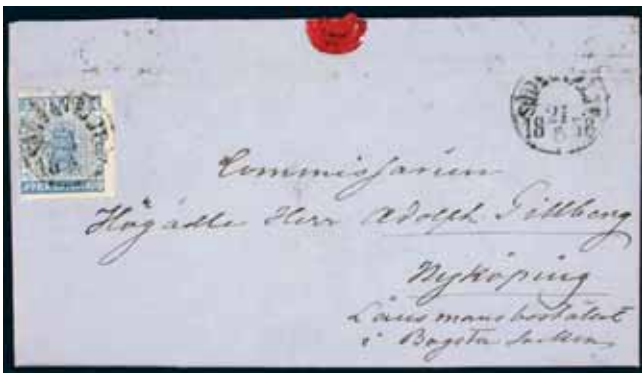 SÖDERTELJE
21
18 5 58
Commissarien
Högädle Herr Adolph Tillberg
Nyköping
Länsmansbostället
i Bogsta Socken